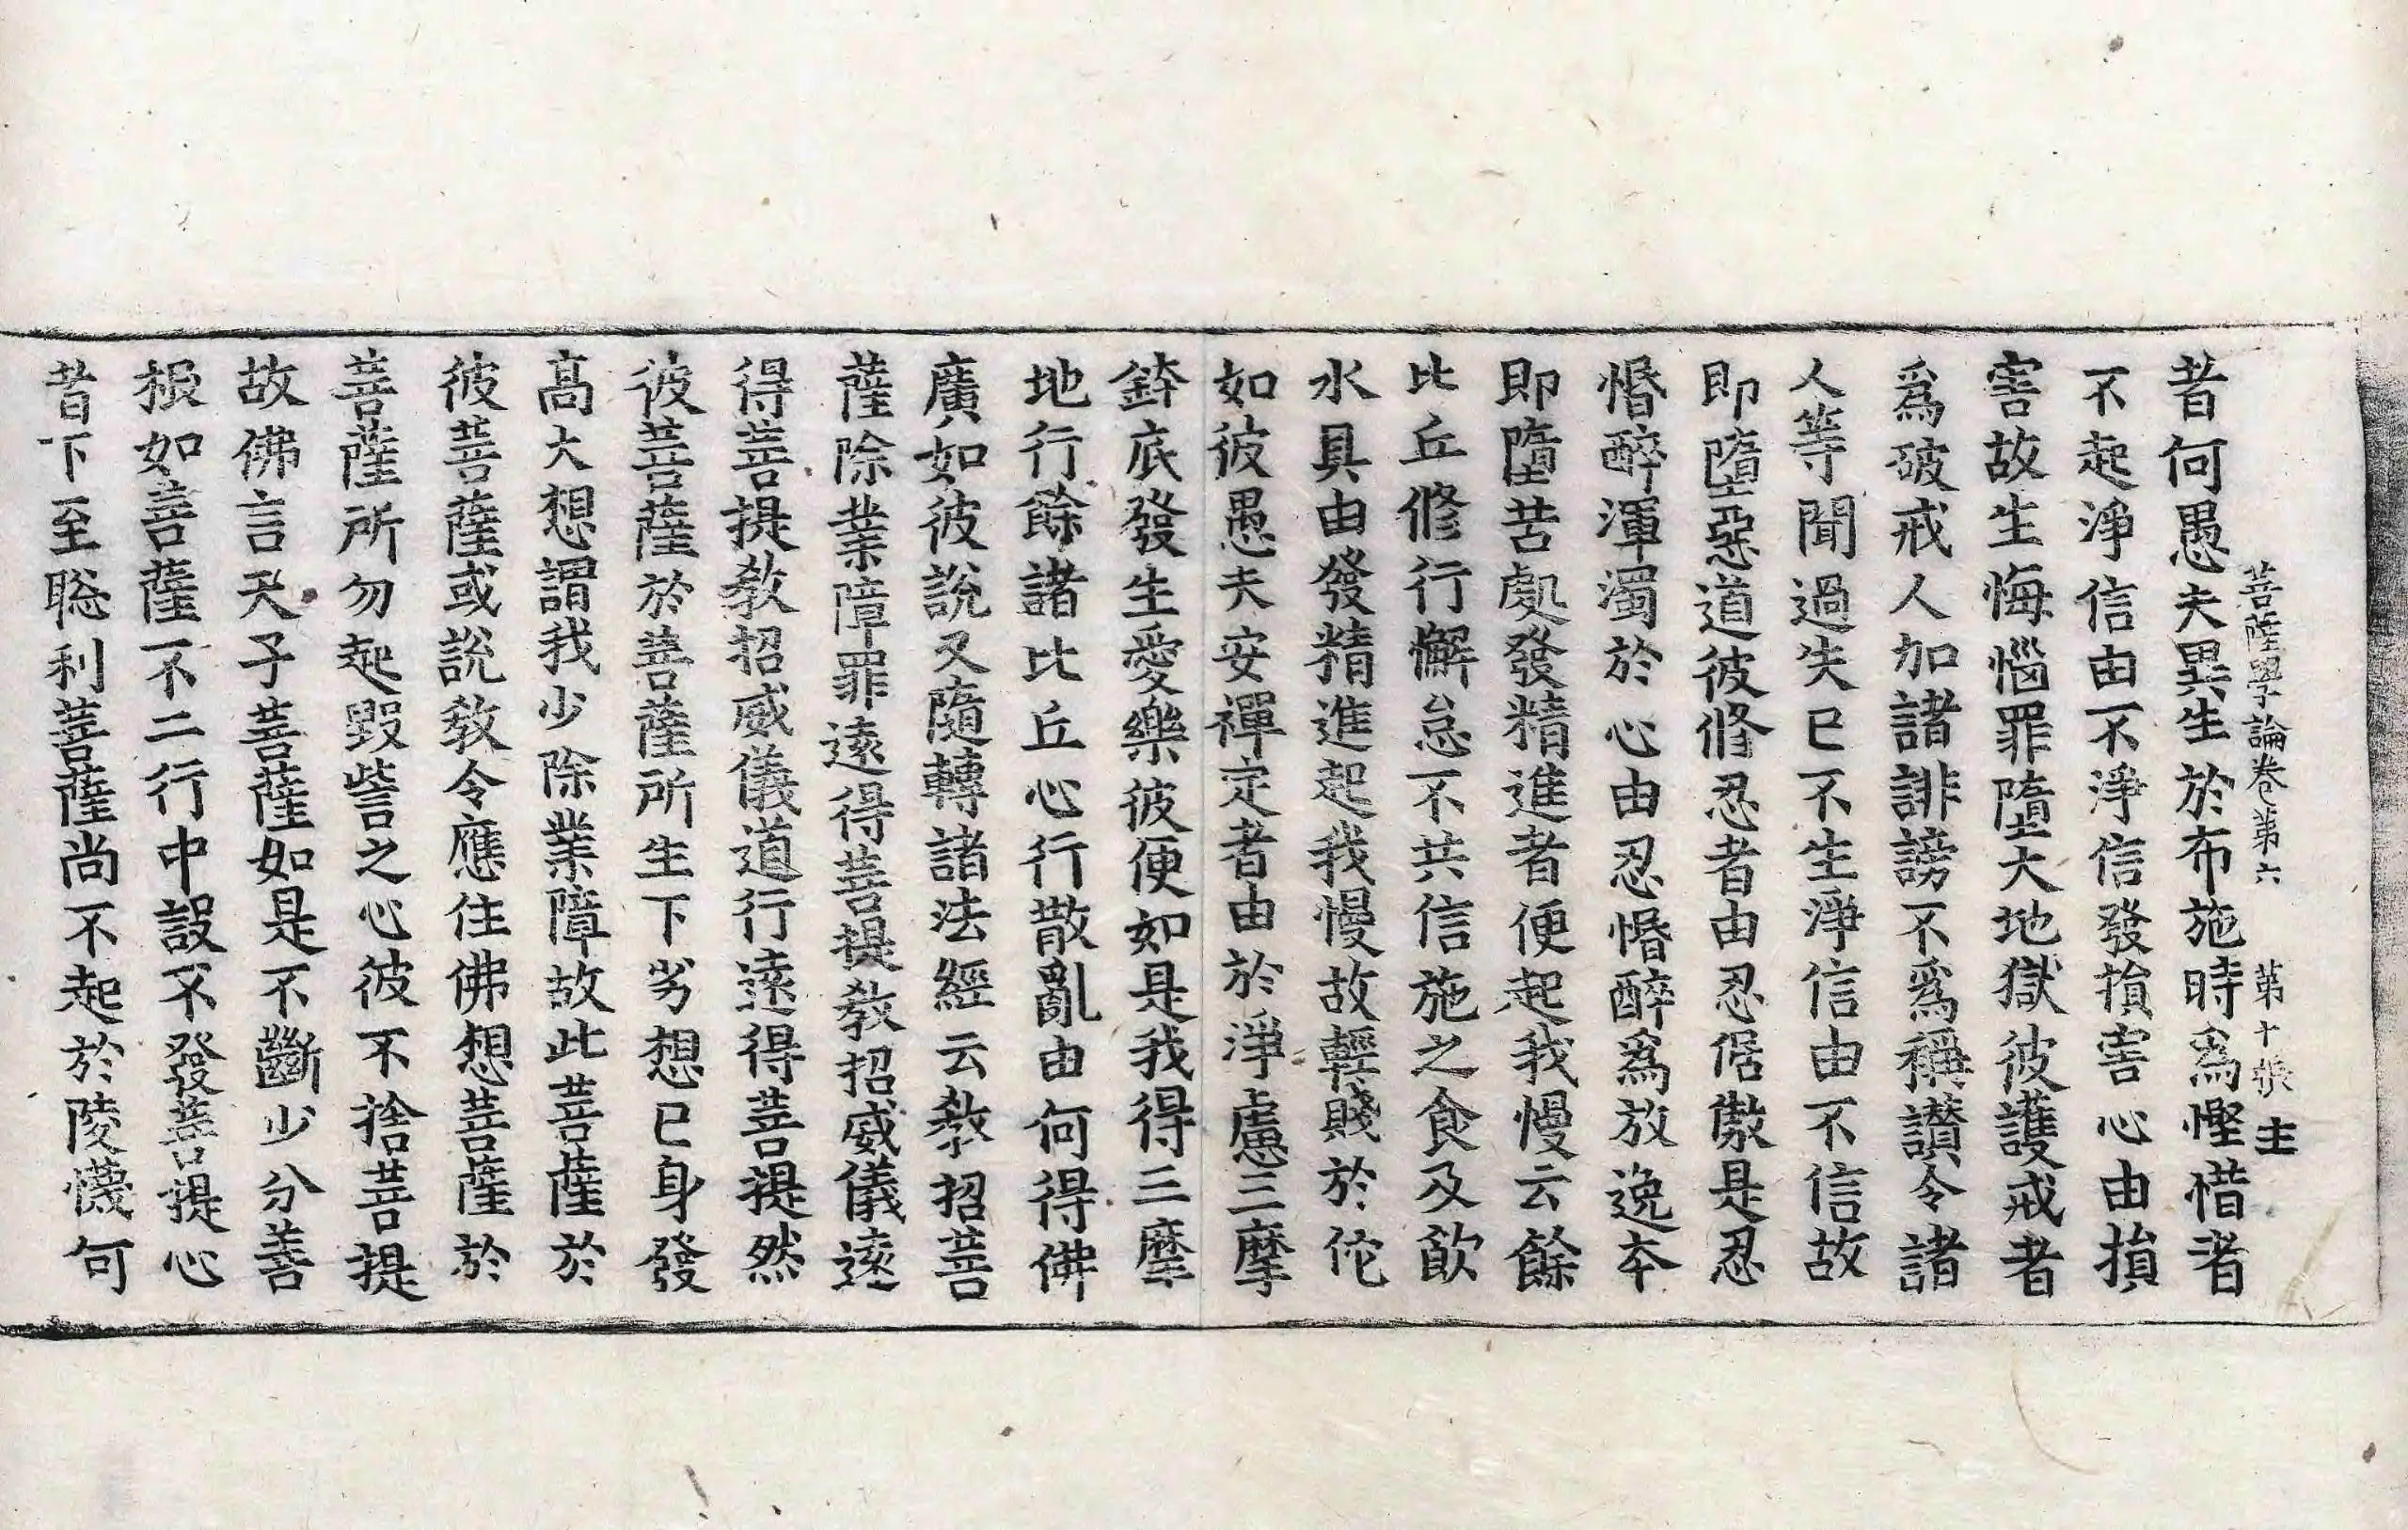 菩薩學論卷第六　第十張　主
者何愚夫異生於布施時爲慳惜者
不起淨信由不淨信發損害心由損
害故生悔惱罪墮大地獄彼護戒者
爲破戒人加諸誹謗不爲稱讚令諸
人等聞過失已不生淨信由不信故
即墮惡道彼修忍者由忍倨傲是忍
惛醉渾濁於心由忍惛醉爲放逸本
即墮苦處發精進者便起我慢云餘
比丘修行懈怠不共信施之食及飲
水具由發精進起我慢故輕賤於佗
如彼愚夫安禪定者由於淨慮三摩
鉢底發生愛樂彼便如是我得三摩
地行餘諸比丘心行散亂由何得佛
廣如彼說又隨轉諸法經云教招菩
薩除業障罪遠得菩提教招威儀遠
得菩提教招威儀道行遠得菩提然
彼菩薩於菩薩所生下劣想已身發
高大想謂我少除業障故此菩薩於
彼菩薩或說教令應住佛想菩薩於
菩薩所勿起毀訾之心彼不捨菩提
故佛言天子菩薩如是不斷少分善
根如菩薩不二行中設不發菩提心
者下至聡利菩薩尚不起於陵懱何